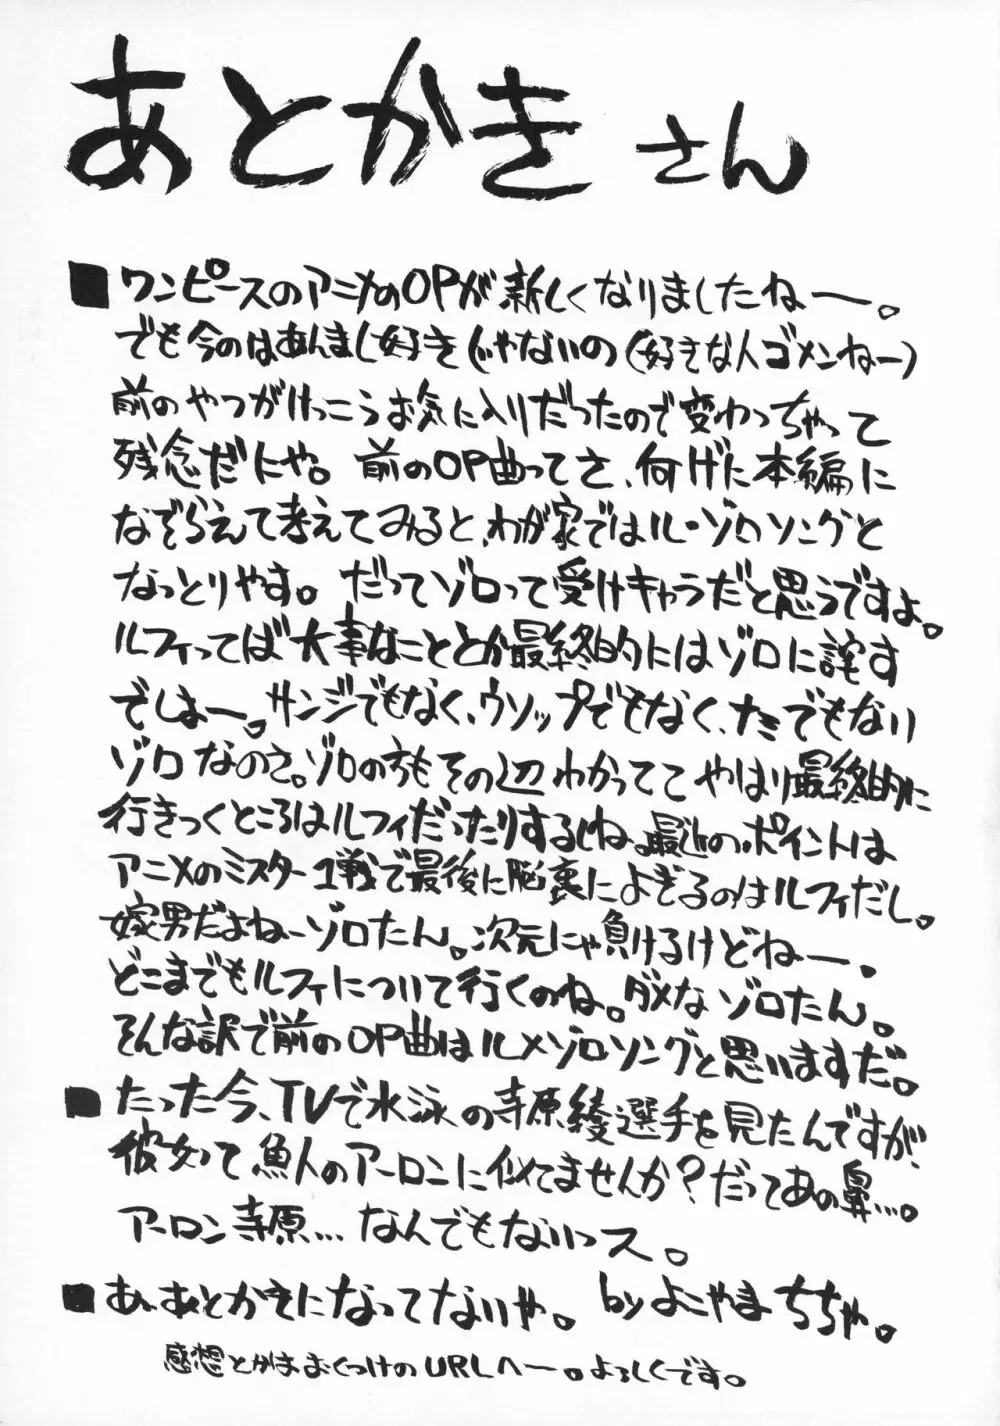 あとかきさん
■ワンピースのアニメのOPが新しくなりましたねー。
でも今のはあんまし好きじゃないの(好きな人ゴメンねー)
前のやつがけっこうお気に入りだったので変わっちゃって
残念だにゃ。前のOP曲ってさ、何げに本編に
なぞらえて考えてみると、わが家ではル・ゾロソングと
なっとりやす。だってゾロって受けキャラだと思うですよ。
ルフィってば大事なこととか最終的にはゾロに託す
でしょー。サンジでもなく、ウソップでもなく、ナミでもない
ゾロなのさ。ゾロの方もその辺わかってて やはり最終的に
行きつくところはルフィだったりするしね。最近のポイントは
アニメのミスター1戦で最後に脳裏によぎるのはルフィだし。
嫁男だよねーゾロたん。次元にゃ負けるけどねー。
どこまでもルフィについて行くのね。ダメなゾロたん。
そんな訳で前のOP曲はル×ゾロソングと思いますだ。
■たった今、TVで水泳の寺原綾選手を見たんですが、
彼女って魚人のアーロンに似てませんか?だってあの鼻…。
アーロン寺原…なんでもないっス。
■あ、あとかきになってないや。 by よこやまちちゃ。
感想とかはおくつけのURLへー。よろしくです。